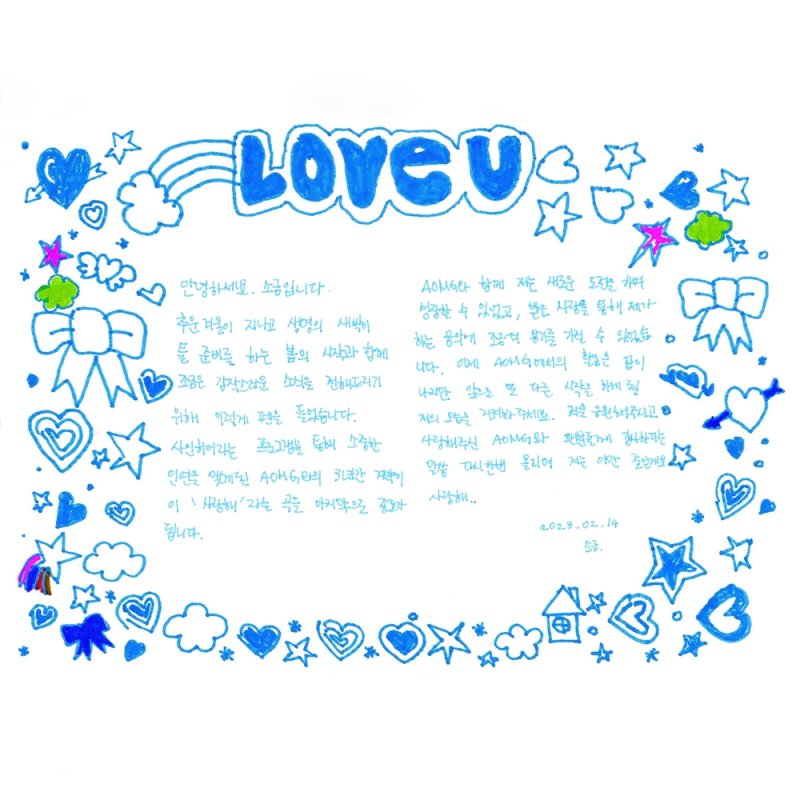 LOVE U
안녕하세요. 소금입니다.
추운 겨울이 지나고 생명의 새싹이
틀 준비를 하는 봄의 시작과 함께
조금은 갑작스러운 소식을 전해드리기
위해 이렇게 펜을 들었습니다.
사인히어라는 프로그램을 통해 소중한
인연을 맺게된 AOMG와의 3년간 계약이
이 '사랑해' 라는 곡을 마지막으로 종료가
됩니다.
AOMG와 함께 저는 새로운 도전을 하며
성장할 수 있었고, 많은 사랑을 통해 제가
하는 음악에 조금더 용기를 가질 수 있었습
니다. 이제 AOMG에서의 활동은 끝이
나지만 앞으로 또 다른 시작을 하게 될
저의 모습을 지켜봐주세요. 저를 응원해주시고
사랑해주신 AOMG와 팬분들에게 감사하다는
말씀 다시한번 올리며 저는 이만 줄일게요
사랑해..
2023.02.14
소금.